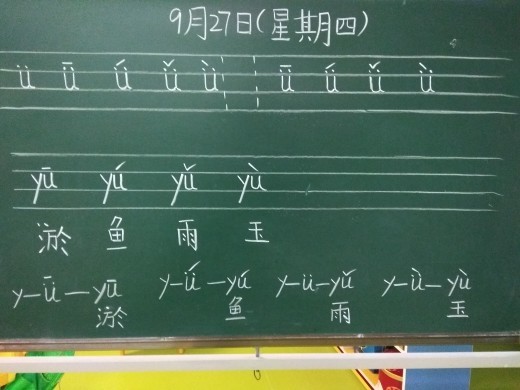 9月27日(星期四)
ü ǖ ǘ ǚ ǜ ǖ ǘ ǚ ǜ
yū yú yǔ yù
淤 鱼 雨 玉
y-ǖ-yū y-ǘ-yú y-ü-yǔ y-ǜ-yù
淤 鱼 雨 玉